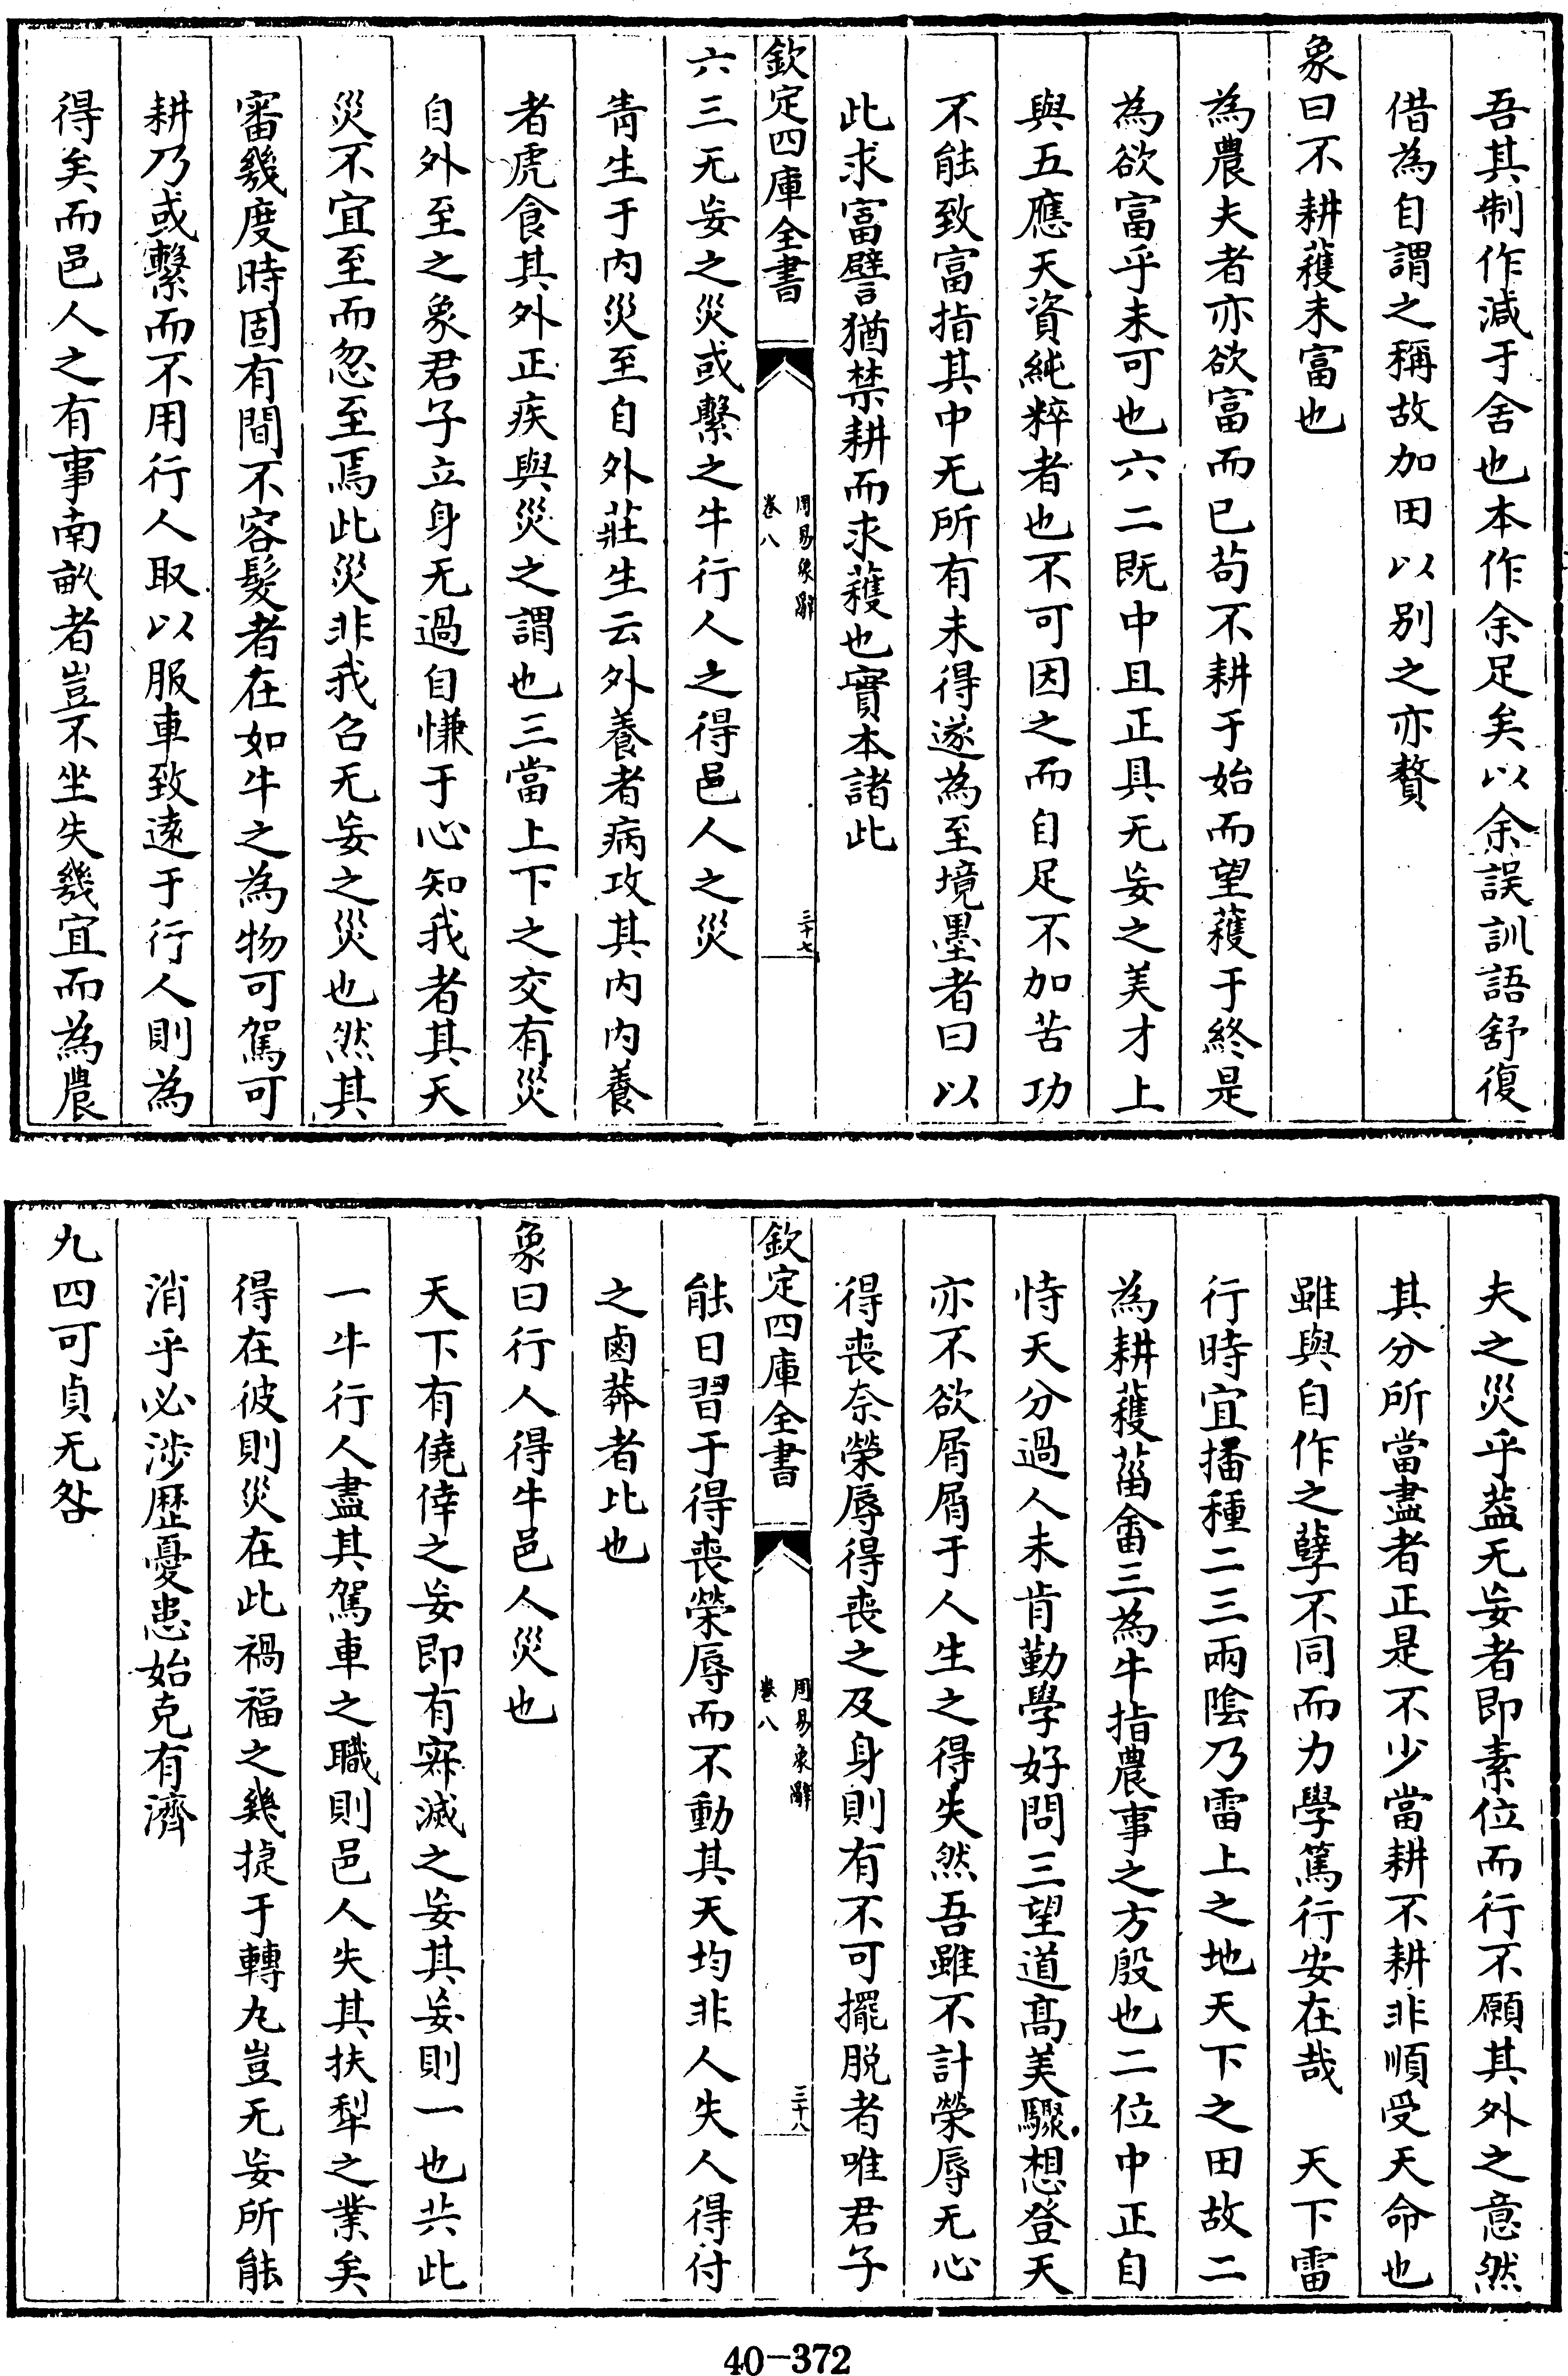 吾其制作減于舍也本作余足矣以余誤訓語舒復
借為自謂之稱故加田以别之亦贅
象曰不耕穫未富也
為農夫者亦欲富而已苟不耕于始而望穫于終是
為欲富乎未可也六二既中且正具无妄之美才上
與五應天資純粹者也不可因之而自足不加苦功
不能致富指其中无所有未得遂為至境墨者曰以
此求富譬猶禁耕而求穫也實本諸此
欽定四庫全書
周易象辭
卷八
三十七
六三无妄之災或繫之牛行人之得邑人之災
眚生于内災至自外莊生云外養者病攻其内内養
者虎食其外正疾與災之謂也三當上下之交有災
自外至之象君子立身无過自慊于心知我者其天
災不宜至而忽至焉此災非我召无妄之災也然其
審幾度時固有間不容髮者在如牛之為物可駕可
耕乃或繫而不用行人取以服車致遠于行人則為
得矣而邑人之有事南畝者豈不坐失幾宜而為農
夫之災乎葢无妄者即素位而行不願其外之意然
其分所當盡者正是不少當耕不耕非順受天命也
雖與自作之孽不同而力學篤行安在哉　天下雷
行時宜播種二三兩陰乃雷上之地天下之田故二
為耕穫菑畬三為牛指農事之方殷也二位中正自
恃天分過人未肯勤學好問三望道高美驟想登天
亦不欲屑屑于人生之得失然吾雖不計榮辱无心
得喪奈榮辱得喪之及身則有不可擺脱者唯君子
欽定四庫全書
周易象辭
卷八
三十八
能日習于得喪榮辱而不動其天均非人失人得付
之鹵莽者比也
象曰行人得牛邑人災也
天下有僥倖之妄即有寂滅之妄其妄則一也共此
一牛行人盡其駕車之職則邑人失其扶犁之業矣
得在彼則災在此禍福之幾捷于轉丸豈无妄所能
消乎必涉歷憂患始克有濟
九四可貞无咎
40-372